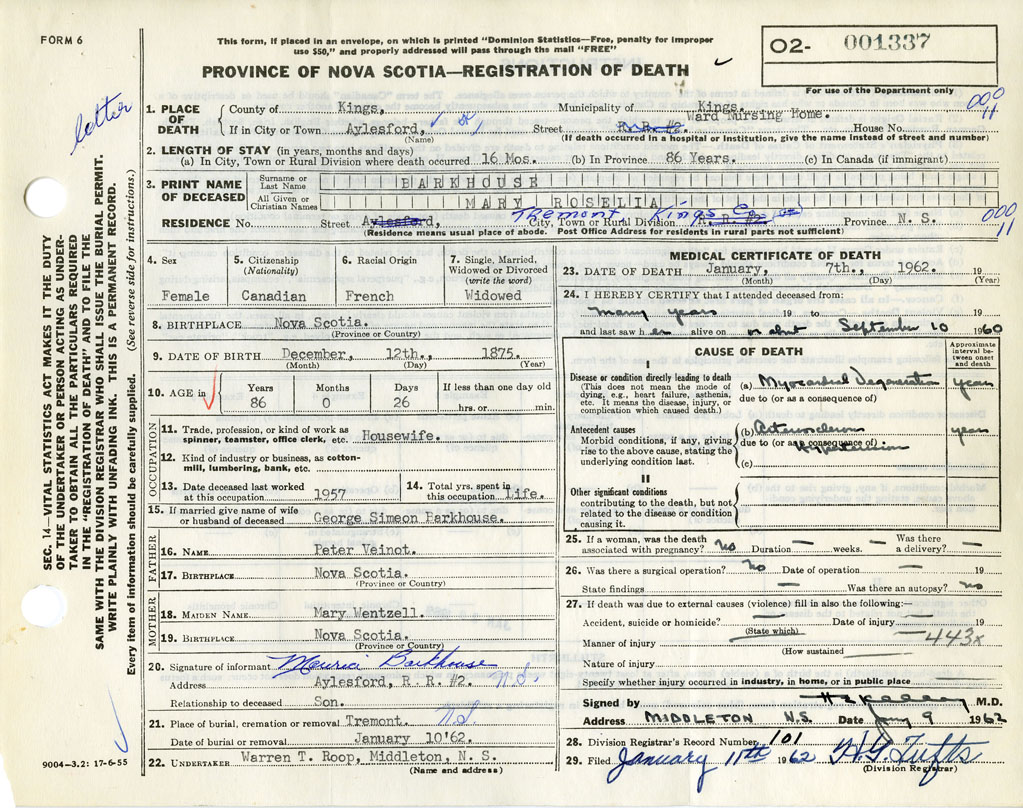 FORM 6
This form, if placed in an envelope, on which is printed "Dominion Statistics—Free, penalty for improper
use $50," and properly addressed will pass through the mail "FREE"
PROVINCE OF NOVA SCOTIA—REGISTRATION OF DEATH
O2- 001337
For use of the Department only
letter
SEC. 14—VITAL STATISTICS ACT MAKES IT THE DUTY
OF THE UNDERTAKER OR PERSON ACTING AS UNDER-
TAKER TO OBTAIN ALL THE PARTICULARS REQUIRED
IN THE "REGISTRATION OF DEATH" AND TO FILE THE
SAME WITH THE DIVISION REGISTRAR WHO SHALL ISSUE THE BURIAL PERMIT.
WRITE PLAINLY WITH UNFADING INK. THIS IS A PERMANENT RECORD.
Every item of information should be carefully supplied. (See reverse side for instructions.)
1. PLACE OF DEATH
County of Kings, Municipality of Kings. 000 11
Ward Nursing Home.
If in City or Town Aylesford, Street R.R. #2. House No.
(Name) (If death occurred in a hospital or Institution, give the name instead of street and number)
2. LENGTH OF STAY (in years, months and days)
(a) In City, Town or Rural Division where death occurred 16 Mos. (b) In Province 86 Years. (c) In Canada (if immigrant)
3. PRINT NAME OF DECEASED
Surname or Last Name BARKHOUSE
All Given or Christian Names MARY ROSELIA
Tremont, Kings Co. 000 11
RESIDENCE No. Street Aylesford, City, Town or Rural Division R. R. #2 Province N. S.
(Residence means usual place of abode. Post Office Address for residents in rural parts not sufficient)
4. Sex Female
5. Citizenship (Nationality) Canadian
6. Racial Origin French
7. Single, Married, Widowed or Divorced (write the word) Widowed
8. BIRTHPLACE Nova Scotia.
(Province or Country)
9. DATE OF BIRTH December, 12th., 1875.
(Month) (Day) (Year)
10. AGE in Years 86 Months 0 Days 26 If less than one day old hrs. or min.
OCCUPATION
11. Trade, profession, or kind of work as spinner, teamster, office clerk, etc. Housewife.
12. Kind of industry or business, as cotton-mill, lumbering, bank, etc.
13. Date deceased last worked at this occupation 1957
14. Total yrs. spent in this occupation Life.
15. If married give name of wife or husband of deceased George Simeon Barkhouse.
FATHER
16. NAME Peter Veinot.
17. BIRTHPLACE Nova Scotia.
(Province or Country)
MOTHER
18. MAIDEN NAME Mary Wentzell.
19. BIRTHPLACE Nova Scotia.
(Province or Country)
20. Signature of informant Barkhouse
Address Aylesford, R. R. #2. N.S.
Relationship to deceased Son.
21. Place of burial, cremation or removal Tremont. N.S.
Date of burial or removal January 10'62.
22. UNDERTAKER Warren T. Roop, Middleton, N. S.
(Name and address)
9004—3.2: 17-6-55
MEDICAL CERTIFICATE OF DEATH
23. DATE OF DEATH January, 7th., 1962. 19
(Month) (Day) (Year)
24. I HEREBY CERTIFY that I attended deceased from:
many years 19 to 19
and last saw her alive on or about September 10 1960
CAUSE OF DEATH
Approximate interval between onset and death
I
Disease or condition directly leading to death
(This does not mean the mode of dying, e.g., heart failure, asthenia, etc. It means the disease, injury, or complication which caused death.)
(a) Myocardial Degeneration years
due to (or as a consequence of)
Antecedent causes
Morbid conditions, if any, giving rise to the above cause, stating the underlying condition last.
(b) Arteriosclerosis years
due to (or as a consequence of)
Hypertension
(c)
II
Other significant conditions
contributing to the death, but not related to the disease or condition causing it.
25. If a woman, was the death associated with pregnancy? No Duration — weeks. — Was there a delivery? —
26. Was there a surgical operation? No Date of operation — 19
State findings — Was there an autopsy? No
27. If death was due to external causes (violence) fill in also the following:—
Accident, suicide or homicide? — Date of injury — 19
(State which) 443x
Manner of injury
(How sustained)
Nature of injury
Specify whether injury occurred in industry, in home, or in public place
Signed by M.D.
Address MIDDLETON N.S. Date Jany 9 1962
28. Division Registrar's Record Number 101
29. Filed January 11th 1962 H.G. Tufts
(Division Registrar)